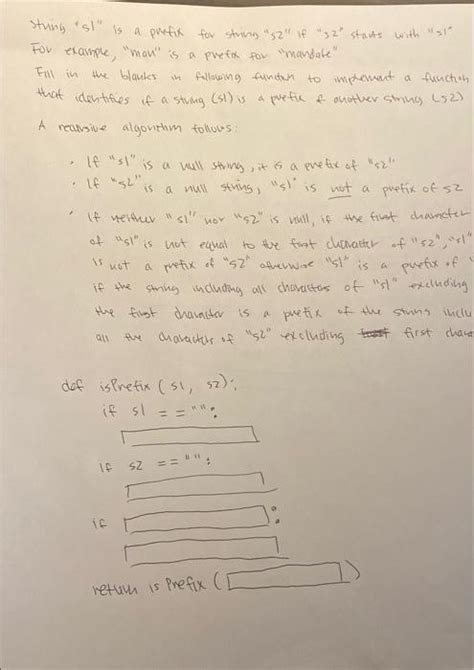 String "s1" is a prefix for string "s2" if "s2" starts with "s1"
For example, "man" is a prefix for "mandate"
Fill in the blanks in following function to implement a function
that identifies if a string (s1) is a prefix of another string (s2)
A recursive algorithm follows:
• If "s1" is a null string, it is a prefix of "s2"
• If "s2" is a null string, "s1" is not a prefix of s2
• If neither "s1" nor "s2" is null, if the first character
of "s1" is not equal to the first character of "s2", "s1"
is not a prefix of "s2" otherwise "s1" is a prefix of "
if the string including all characters of "s1" excluding
the first character is a prefix of the string inclu
all the characters of "s2" excluding first chara
def isPrefix (s1, s2):
if s1 == "":
if s2 == "":
if :
return isPrefix ( )